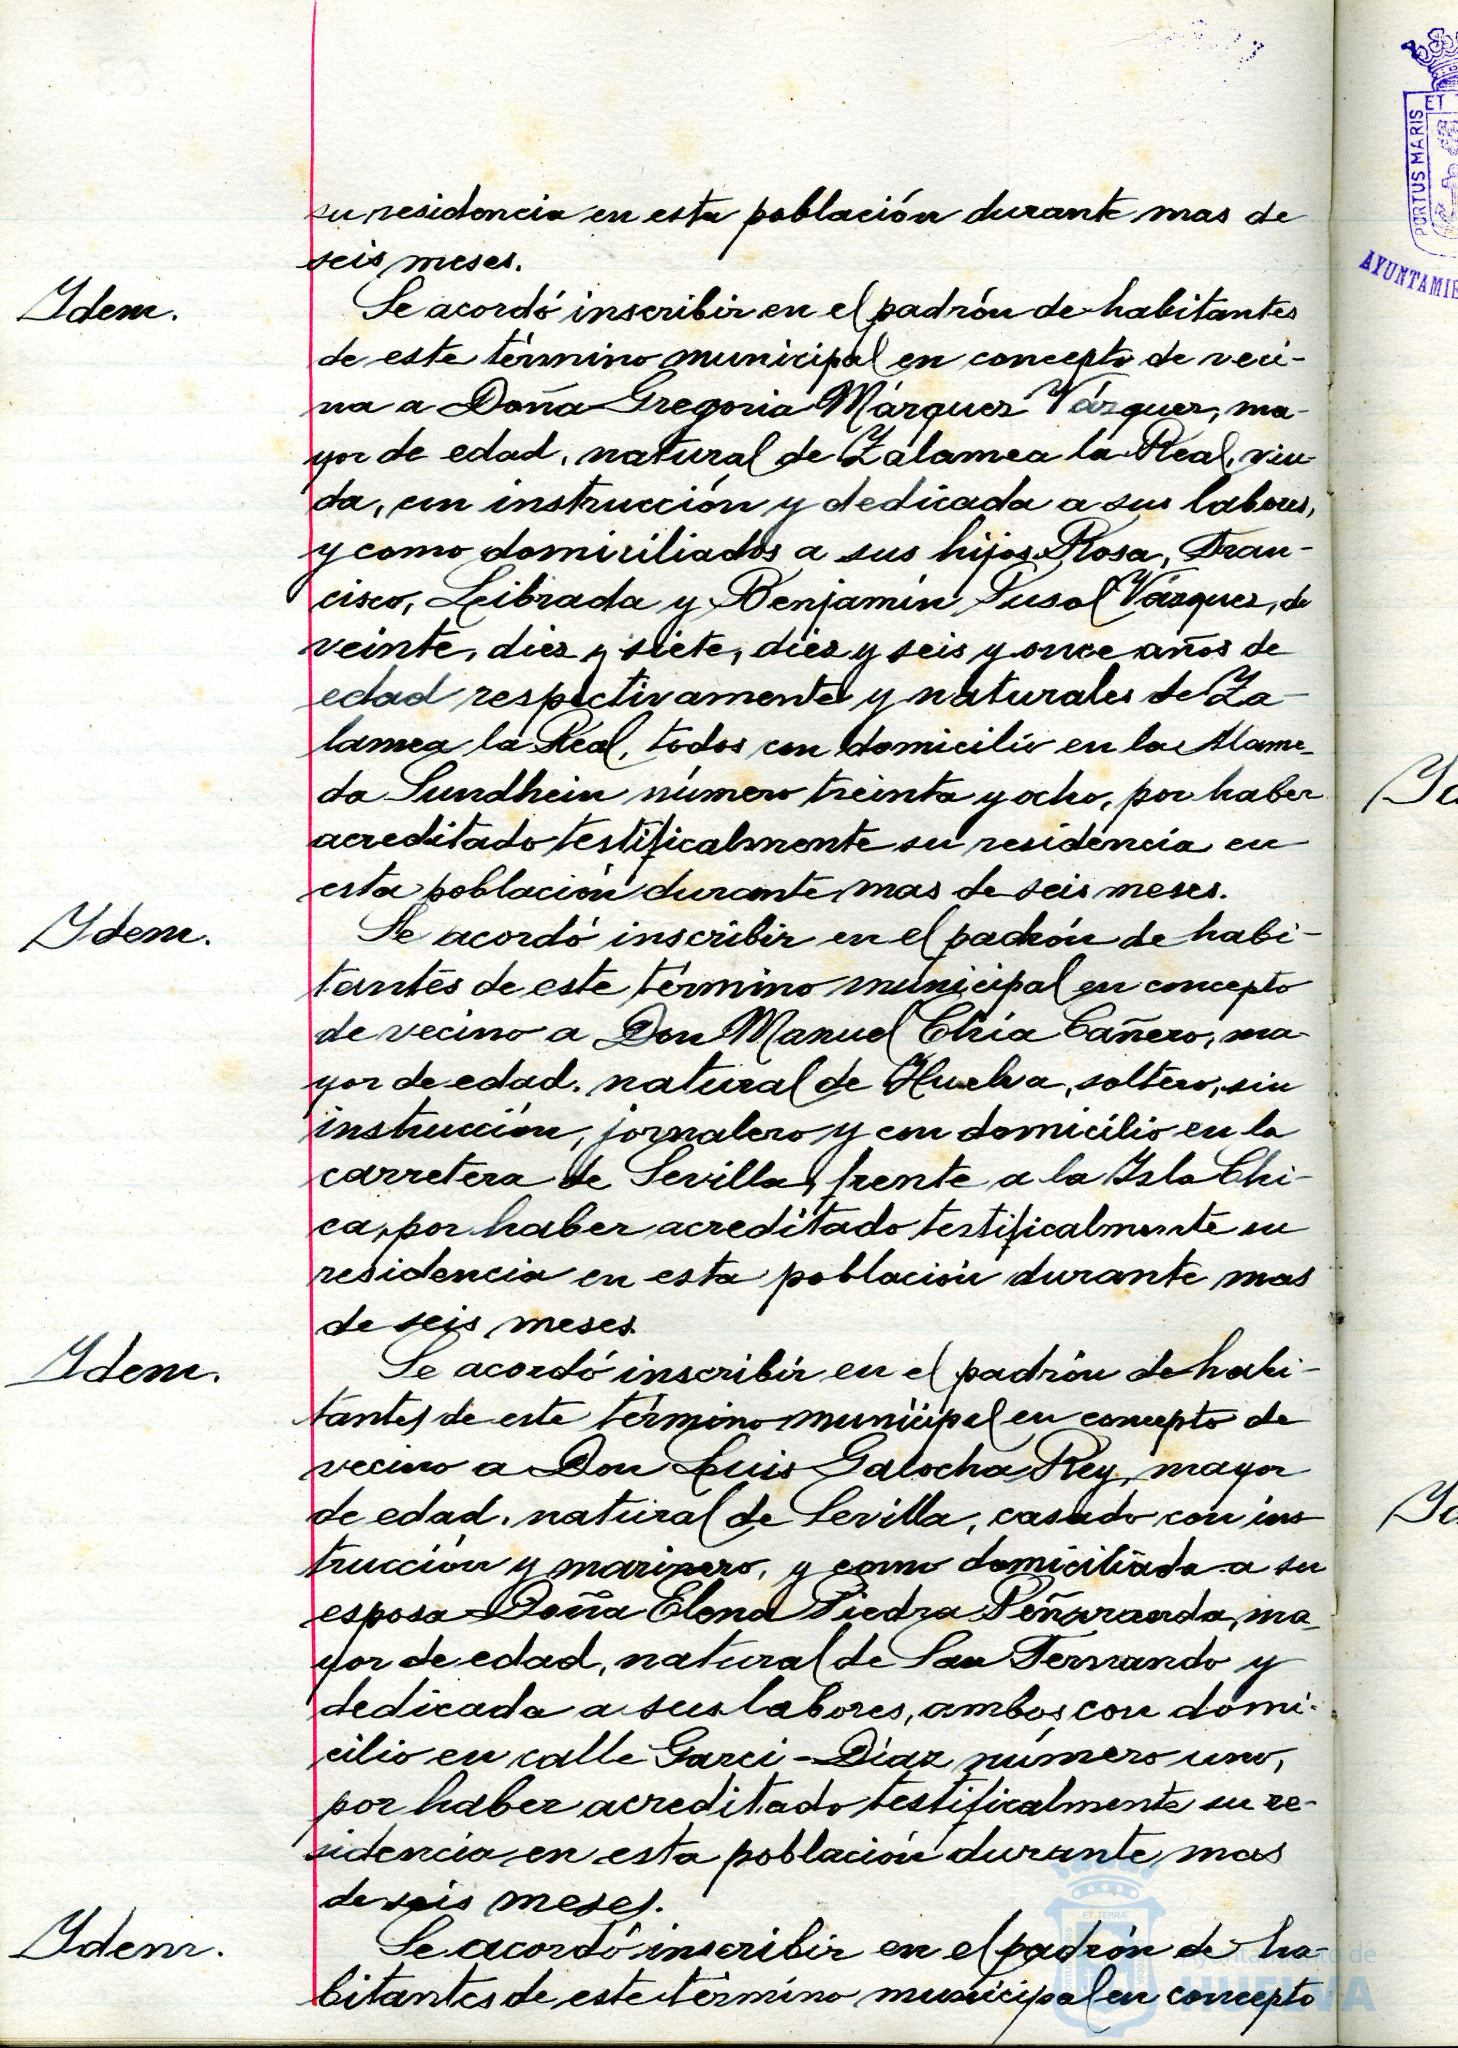 su residencia en esta población durante mas de
seis meses.
Idem.
Se acordó inscribir en el padrón de habitantes
de este término municipal en concepto de veci-
na a Doña Gregoria Márquez Vázquez, ma-
yor de edad, natural de Zalamea la Real, viu-
da, con instrucción y dedicada a sus labores,
y como domiciliados a sus hijos Rosa, Fran-
cisco, Librada y Benjamín Pusol Vázquez, de
veinte, diez y siete, diez y seis y once años de
edad respectivamente y naturales de Za-
lamea la Real, todos con domicilio en la Alame-
da Sundhein número treinta y ocho, por haber
acreditado testificalmente su residencia en
esta población durante mas de seis meses.
Idem.
Se acordó inscribir en el padrón de habi-
tantes de este término municipal en concepto
de vecino a Don Manuel Cañero, ma-
yor de edad, natural de Huelva, soltero, sin
instrucción, jornalero y con domicilio en la
carretera de Sevilla, frente a la Isla Chi-
ca, por haber acreditado testificalmente su
residencia en esta población durante mas
de seis meses.
Idem.
Se acordó inscribir en el padrón de habi-
tantes de este término municipal en concepto de
vecino a Don Luis Galocha Rey, mayor
de edad, natural de Sevilla, casado con ins
trucción y marinero, y como domiciliada a su
esposa Doña Elena Piedra Peñaranda, ma-
yor de edad, natural de San Fernando y
dedicada a sus labores, ambos con domi-
cilio en calle Garci-Díaz número uno,
por haber acreditado testificalmente su re-
sidencia en esta población durante mas
de seis meses.
Idem.
Se acordó inscribir en el padrón de ha-
bitantes de este término municipal en concepto
PORTUS MARIS
ET
ET TERRÆ
Ayuntamiento de
HUELVA